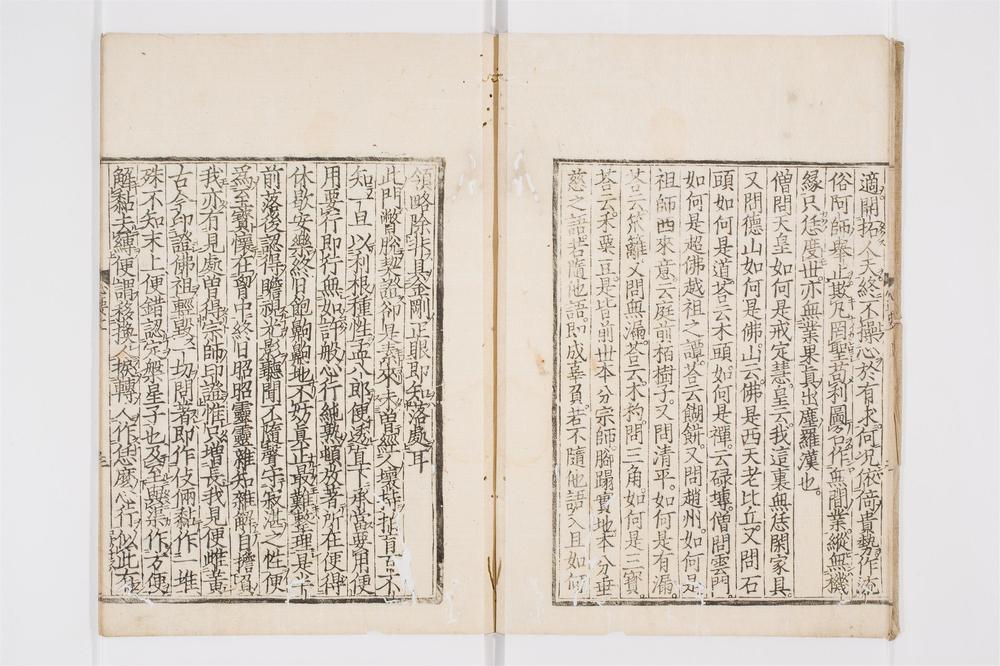 適開拓人天終不操心於有求何况依倚貴勢作流
俗阿師舉止欺凡罔聖苟利圖名作無間業縱無機
緣只恁度世亦無業果真出塵羅漢也。
僧問天皇如何是戒定慧。皇云。我這裏無恁閑家具。
又問德山如何是佛。山云。佛是西天老比丘。又問石
頭如何是道。荅云木頭。如何是禪。云碌塼。僧問雲門。
如何是超佛越祖之譚。荅云餬餅。又問趙州。如何是
祖師西來意。云庭前栢樹子。又問清平。如何是有漏。
荅云笊籬。又問無漏。荅云木杓。問三角如何是三寶
荅云。禾粟豆。是皆前世本分宗師脚蹋實地本分垂
慈之語。若隨他語。即成辜負。若不隨他語。入且如何
領略除非具金剛正眼即知落處耳
此門瞥脫契證卻是素來未曾經人壞持拍盲百不
知一旦以利根種性孟八郎便透直下承當要用便
用要行即行無如許般心行純熟頓放著所在便得
休歇安樂終日飽齁齁地不妨真正最難整理是半
前落後認得瞻視光影聽聞不隨聲守寂湛之性便
爲至寶懷在胷中終日昭昭靈靈雜知雜解自擔負
我亦有見處曾得宗師印證惟只增長我見便雌黃
古今印證佛祖輕毀一切問著即作伎倆黏作一堆
殊不知末上便錯認定盤星子也及至與渠作方便
解黏去縛便謂移換人捩轉人作恁麼心行似此有